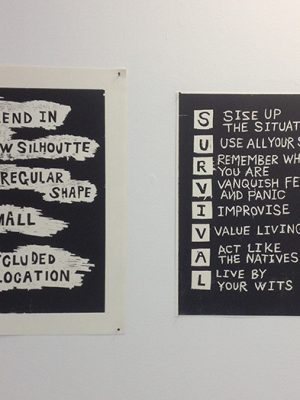 LEND IN
W SILHOUTTE
REGULAR
SHAPE
MALL
LOCATION
S SIZE UP
THE SITUAT
U USE ALL YOUR S
R REMEMBER WH
YOU ARE
V VANQUISH FE
AND PANIC
I IMPROVISE
V VALUE LIVING
A ACT LIKE
THE NATIVES
L LIVE BY
YOUR WITS